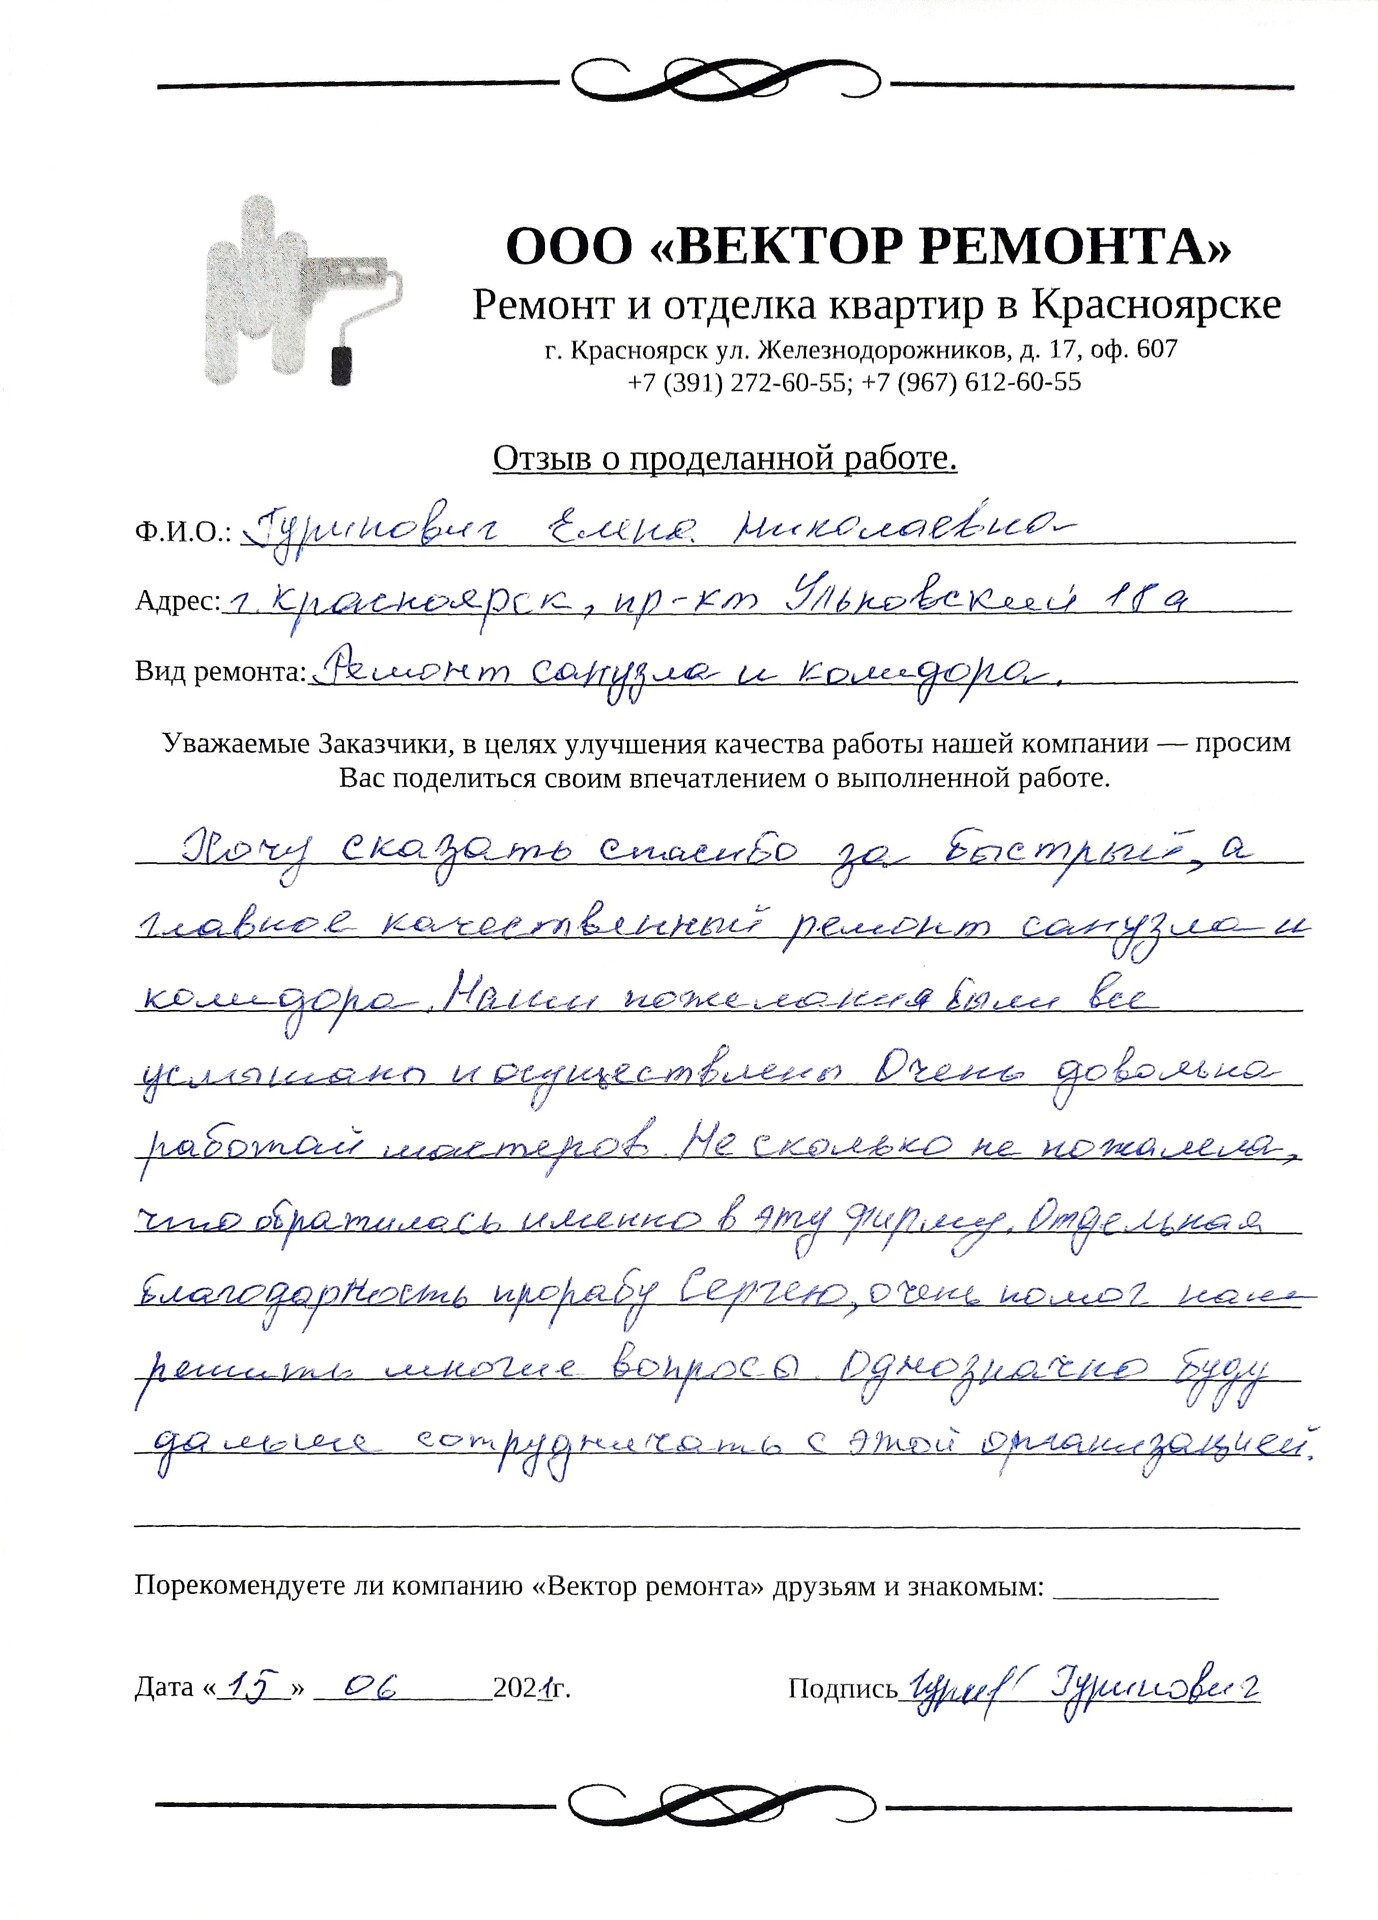 ООО «ВЕКТОР РЕМОНТА»
Ремонт и отделка квартир в Красноярске
г. Красноярск ул. Железнодорожников, д. 17, оф. 607
+7 (391) 272-60-55; +7 (967) 612-60-55
Отзыв о проделанной работе.
Ф.И.О.: Гуринович Елена Николаевна
Адрес: г. Красноярск, пр-кт Ульяновский 18а
Вид ремонта: Ремонт санузла и колидора.
Уважаемые Заказчики, в целях улучшения качества работы нашей компании — просим
Вас поделиться своим впечатлением о выполненной работе.
Хочу сказать спасибо за быстрый, а
главное качественный ремонт санузла и
колидора. Наши пожелания были все
услышаны и осуществлены. Очень довольна
работай мастеров. Не сколько не пожалела,
что обратилась именно в эту фирму. Отдельная
благодарность прорабу Сергею, очень помог нам
решить многие вопросы. Однозначно буду
дальше сотрудничать с этой организацией.
Порекомендуете ли компанию «Вектор ремонта» друзьям и знакомым:
Дата «15» 06 2021г. Подпись Гуринович